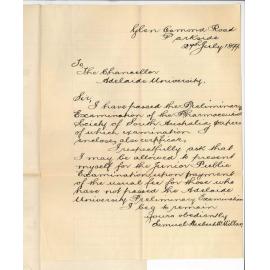 Glen Osmond Road
Parkside
24th July 1899.
To
The Chancellor
Adelaide University.
Sir,
I have passed the Preliminary
Examination of the Pharmaceutical
Society of South Australia, papers
of which examination I
enclose, also certificate.
I respectfully ask that
I may be allowed to present
myself for the Junior Public
Examination upon payment
of the usual fee for those who
have not passed the Adelaide
University Preliminary Examination
I beg to remain
Yours obediently
Samuel